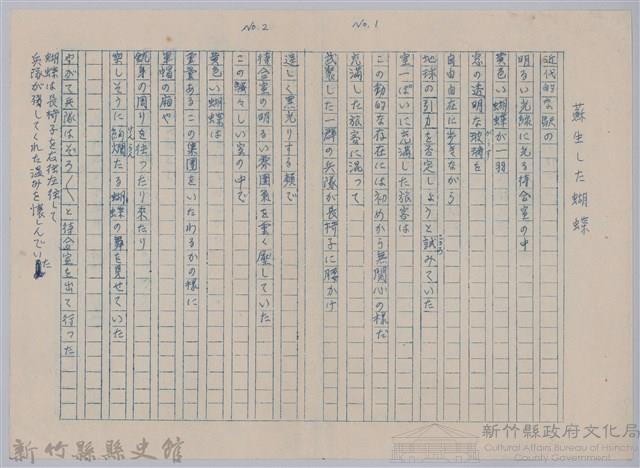 No. 1
No. 2
蘇生した蝴蝶
近代的な駅の
明るい光線に光る待合室の中
黄色い蝴蝶が一羽
窓の透明な玻璃を
自由自在に歩きながら
地球の引力を否定しようと試みていた
室一ぱいに充満した旅客は
この動的な存在には初めから無関心の様だ
充満した旅客に混って
武装した一群の兵隊が長椅子に腰かけ
逞しく黒光りする顔で
待合室の明るい雰囲気を重く壓していた
この騒々しい室の中で
黄色い蝴蝶は
重量あるこの集團をいたわるかの様に
軍帽の廂や
銃身の周りを往ったり来たり
楽しそうに絢爛たる蝴蝶の舞を見せていた
やがて兵隊はぞろ〱と待合室を出て行った
蝴蝶は長椅子を右往左往して
兵隊が残してくれた温みを懐しんでいた
新竹縣縣史館
新竹縣政府文化局
Cultural Affairs Bureau of Hsinchu
County Government